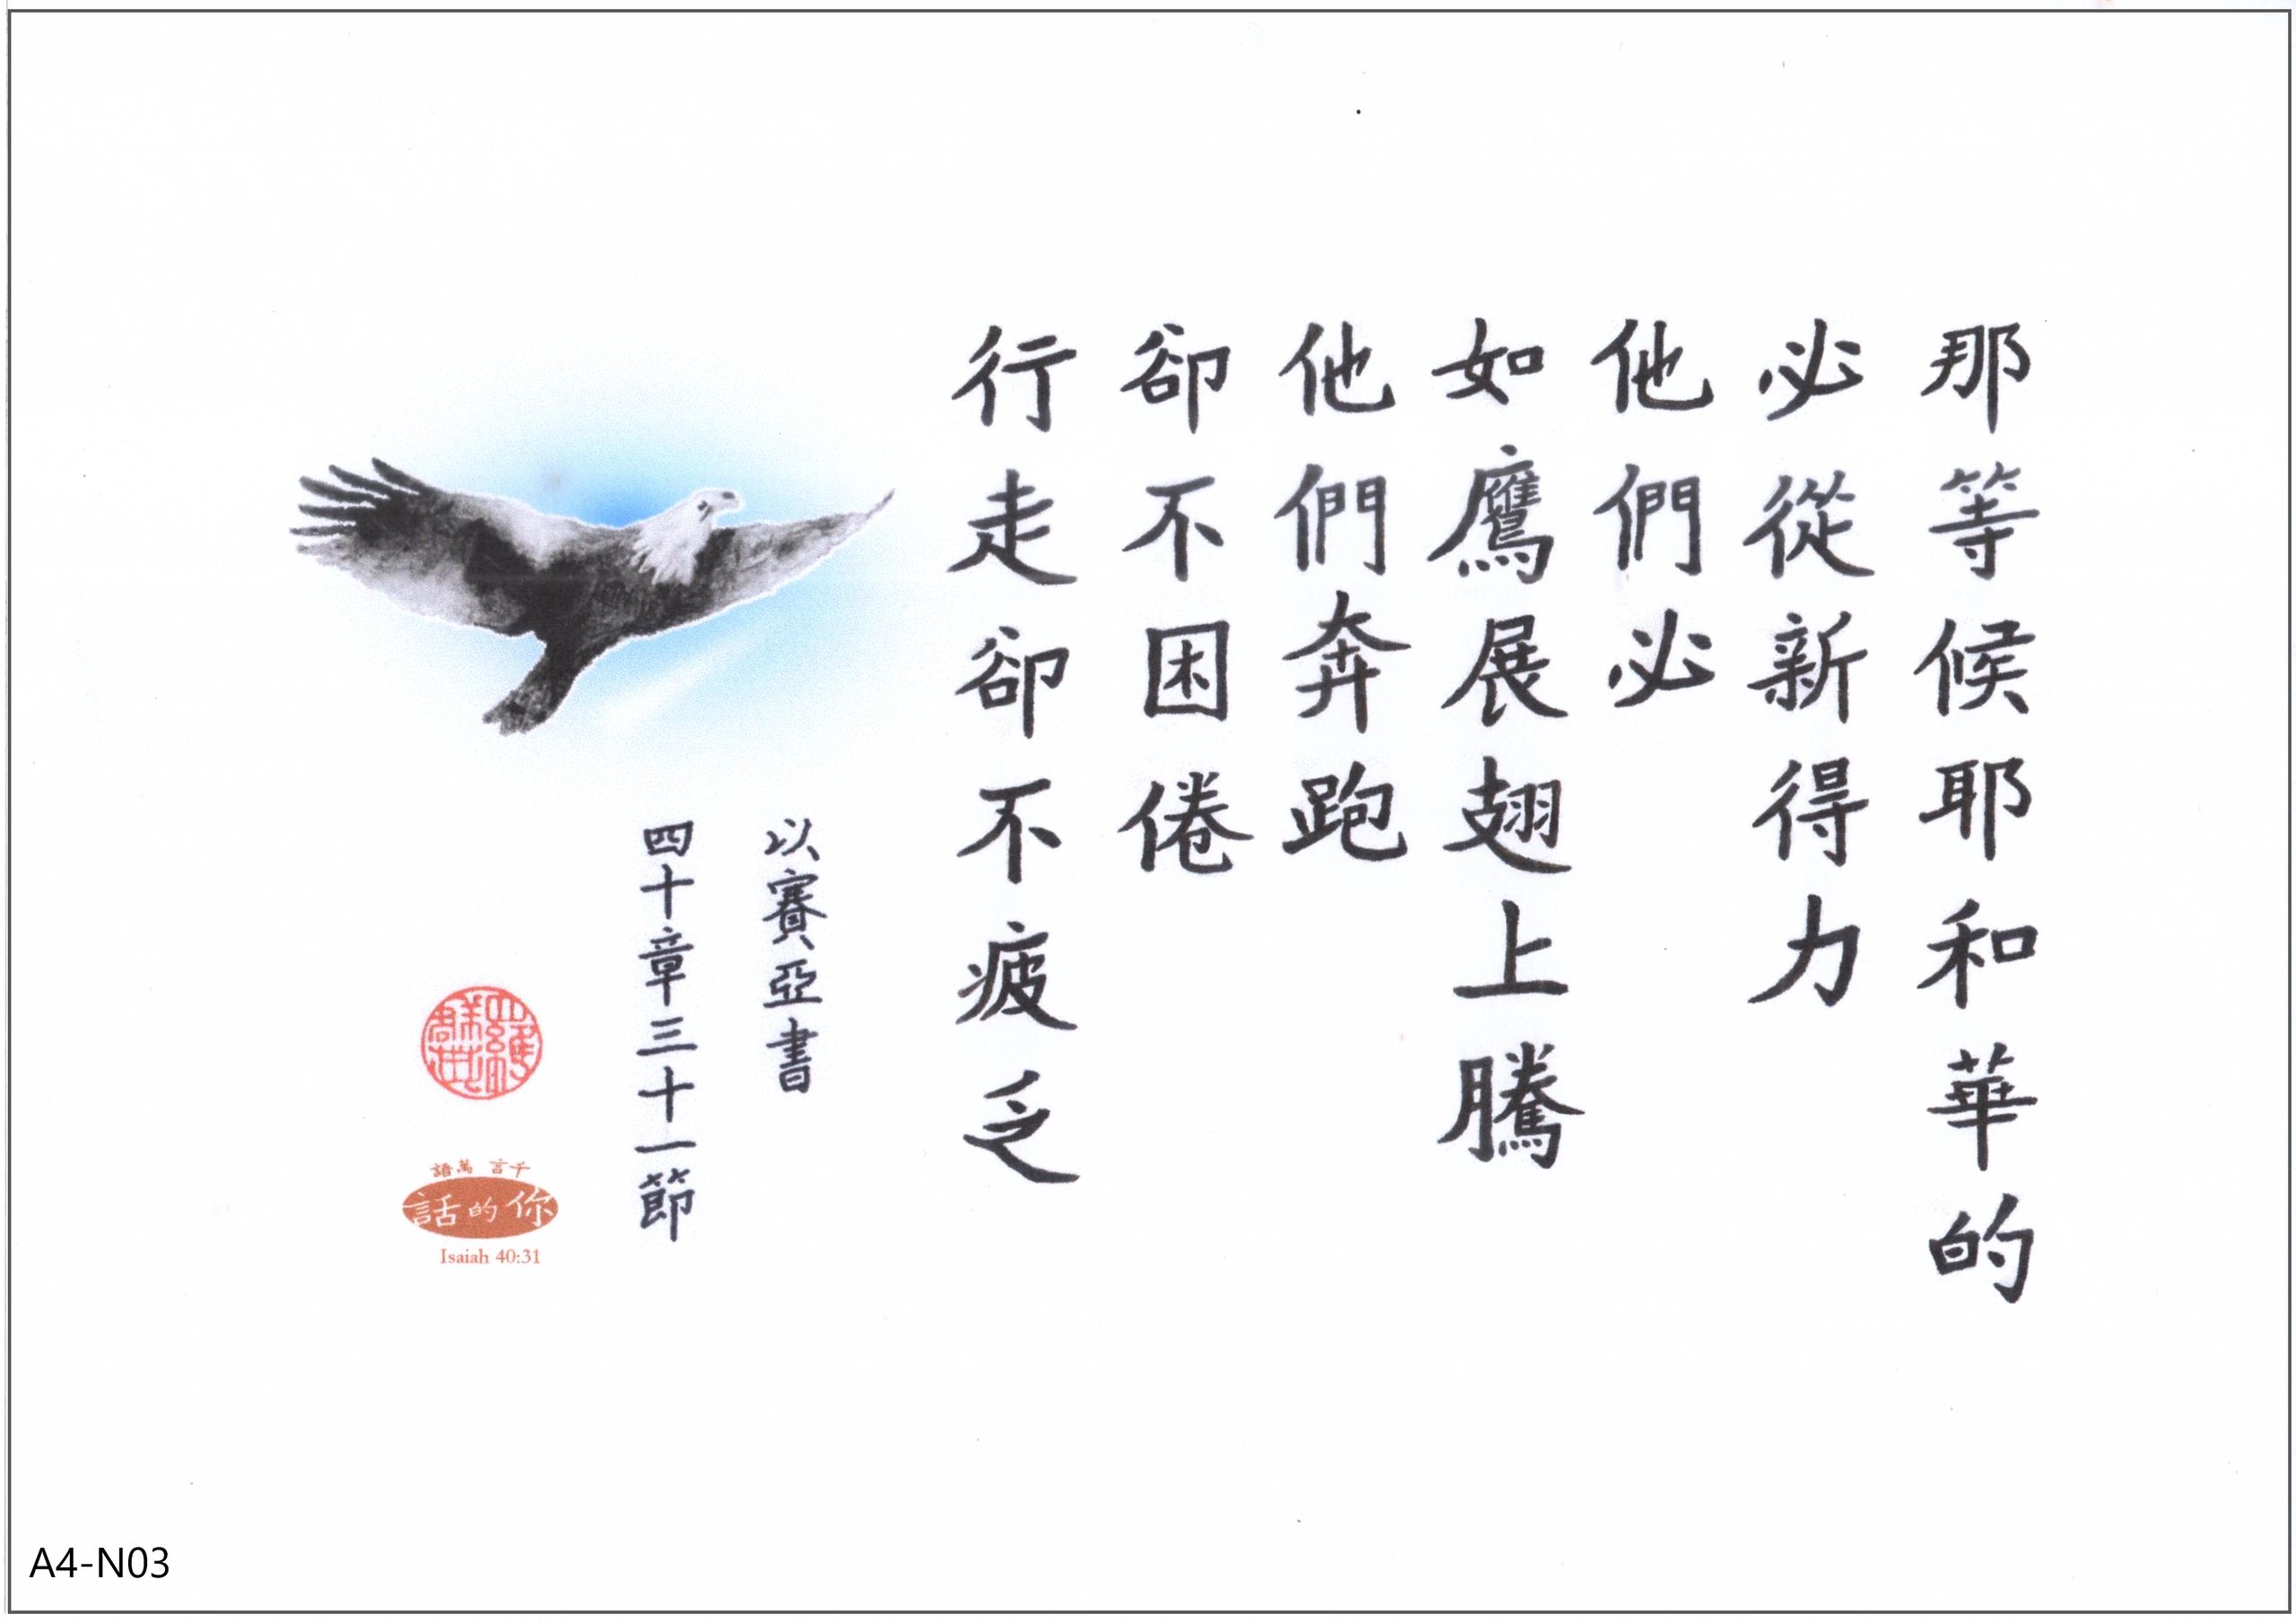 那等候耶和華的
必從新得力
他們必
如鷹展翅上騰
他們奔跑
卻不困倦
行走卻不疲乏
以賽亞書
四十章三十一節
千言萬語
你的話
Isaiah 40:31
A4-N03